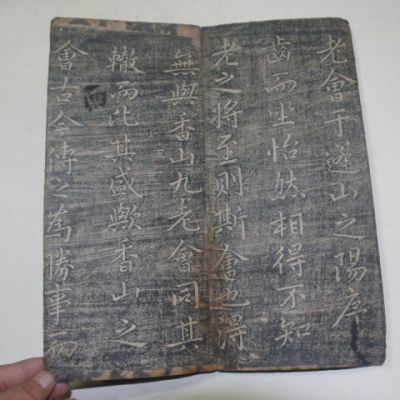 老會于蓬山之陽序
齒而坐怡然相得不知
老之将至则斯會也得
無與香山九老會同其
轍而比其盛歟香山之
會古今傳之爲勝事而